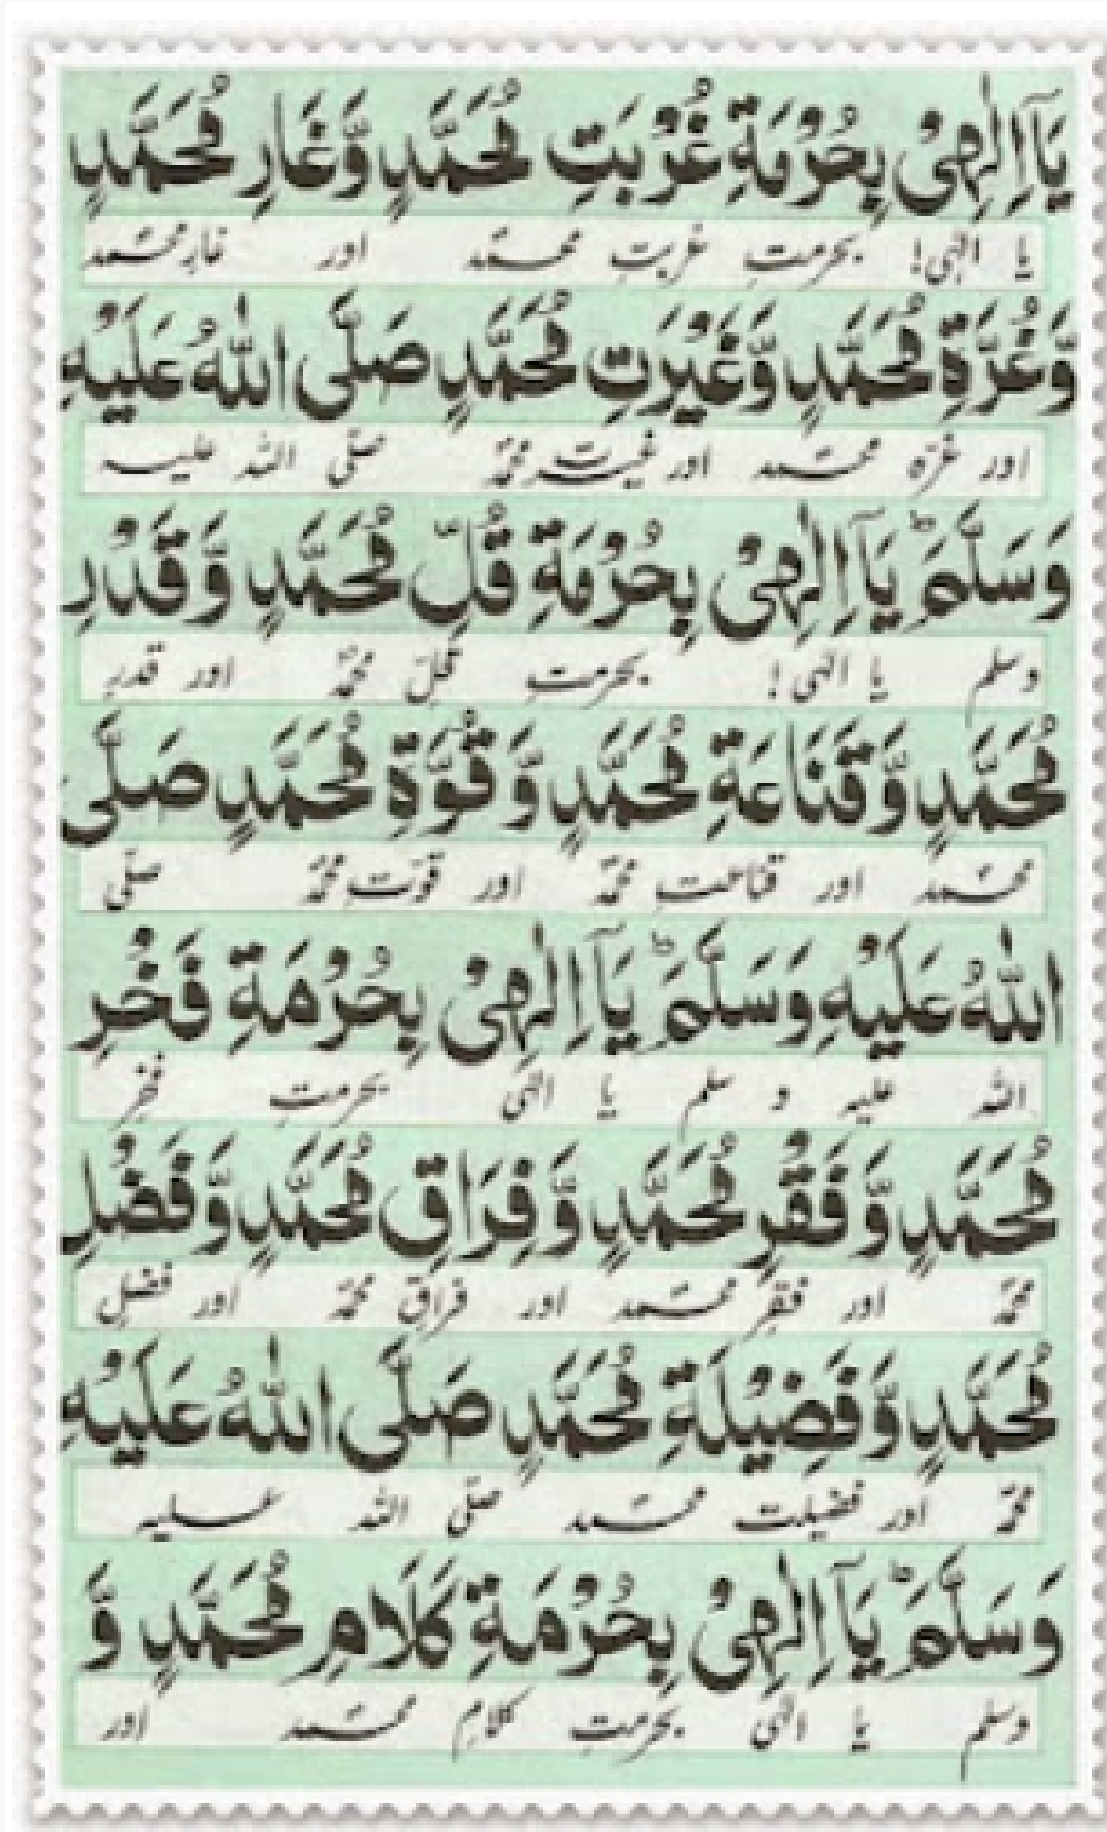 يَآ اِلٰهِيْ بِحُرْمَةِ غُرْبَتِ مُحَمَّدٍ وَّغَارِ مُحَمَّدٍ
یا الٰہی! بحرمتِ غربتِ محمّد اور غارِ محمّد
وَّغُرَّةِ مُحَمَّدٍ وَّغَيْرَتِ مُحَمَّدٍ صَلَّى اللّٰهُ عَلَيْهِ
اور غرّہ محمّد اور غیرت محمّد صلّی اللہ علیہ
وَسَلَّمَ ؕ يَآ اِلٰهِيْ بِحُرْمَةِ قُلِّ مُحَمَّدٍ وَّقَدْرِ
وسلم یا الٰہی! بحرمتِ قلِّ محمّد اور قدرِ
مُحَمَّدٍ وَّقَنَاعَةِ مُحَمَّدٍ وَّقُوَّةِ مُحَمَّدٍ صَلَّى
محمّد اور قناعتِ محمّد اور قوّتِ محمّد صلّی
اللّٰهُ عَلَيْهِ وَسَلَّمَ ؕ يَآ اِلٰهِيْ بِحُرْمَةِ فَخْرِ
اللہ علیہ و سلم یا الٰہی بحرمتِ فخرِ
مُحَمَّدٍ وَّفَقْرِ مُحَمَّدٍ وَّفِرَاقِ مُحَمَّدٍ وَّفَضْلِ
محمّد اور فقرِ محمّد اور فراقِ محمّد اور فضلِ
مُحَمَّدٍ وَّفَضِيْلَةِ مُحَمَّدٍ صَلَّى اللّٰهُ عَلَيْهِ
محمّد اور فضیلت محمّد صلّی اللہ علیہ
وَسَلَّمَ ؕ يَآ اِلٰهِيْ بِحُرْمَةِ كَلَامِ مُحَمَّدٍ وَّ
وسلم یا الٰہی بحرمتِ کلامِ محمّد اور